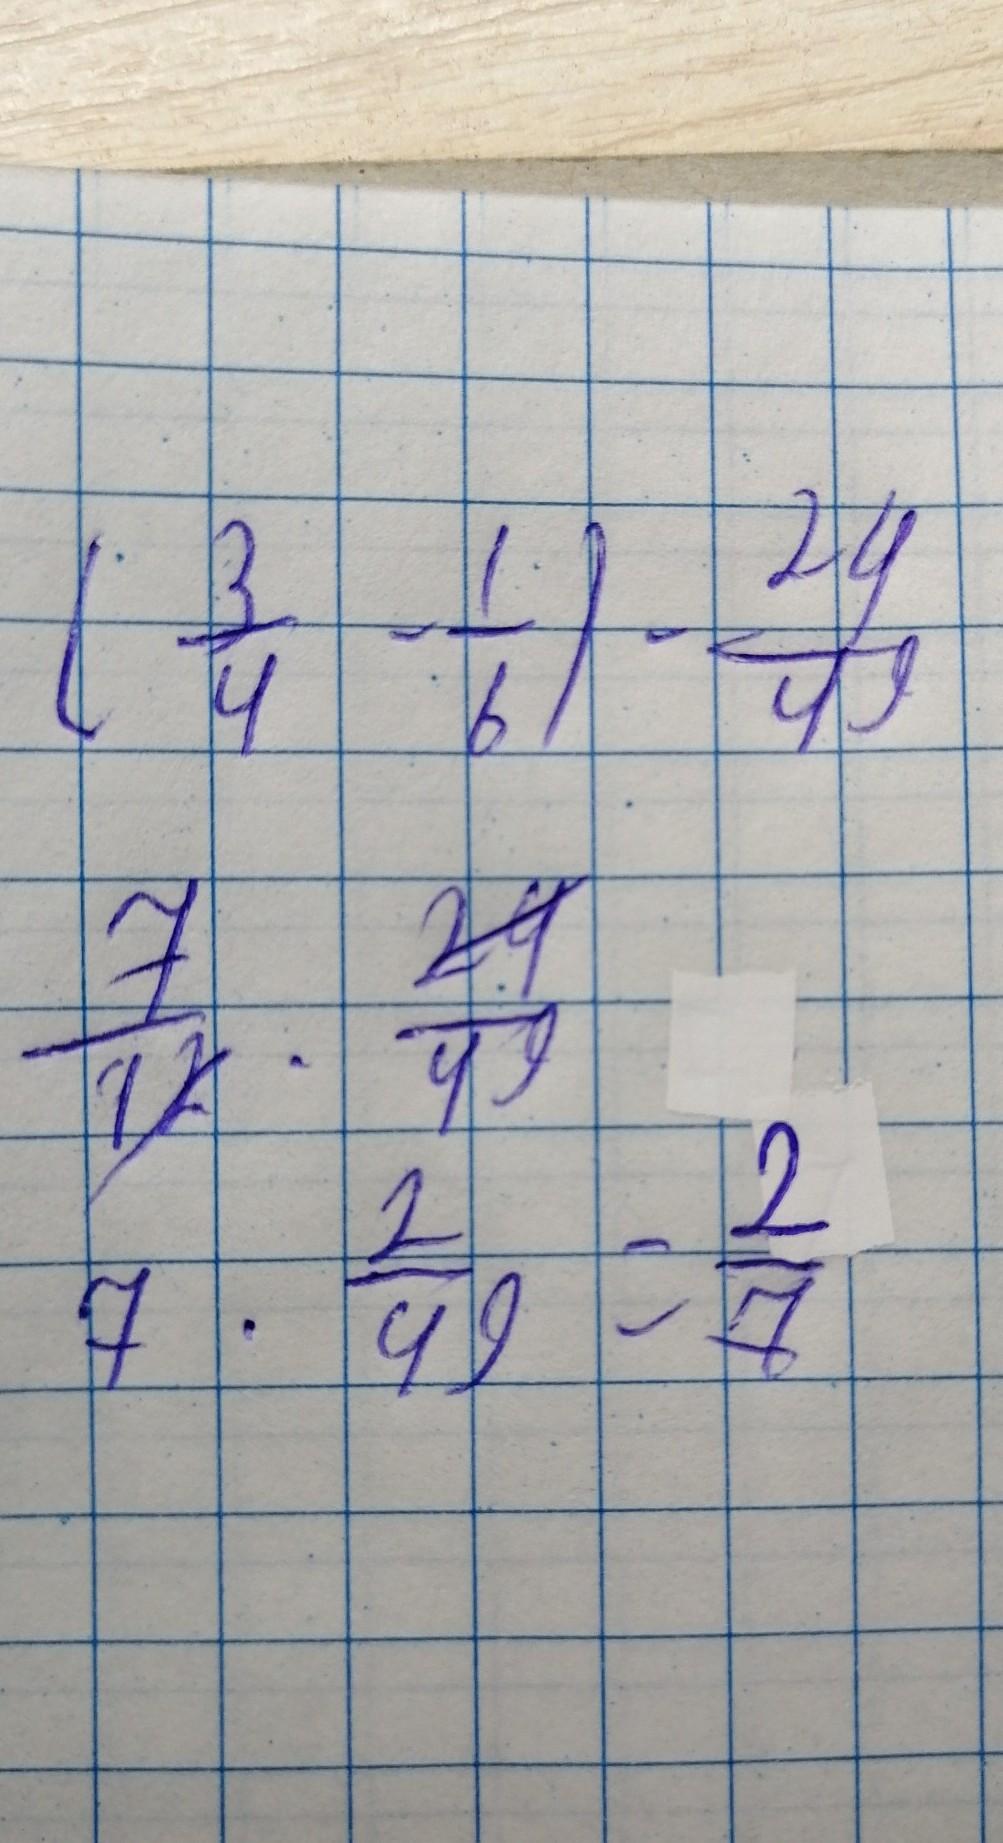 (3/4 - 1/6) - 24/49
7/12 · 24/49
7 · 2/49 = 2/7